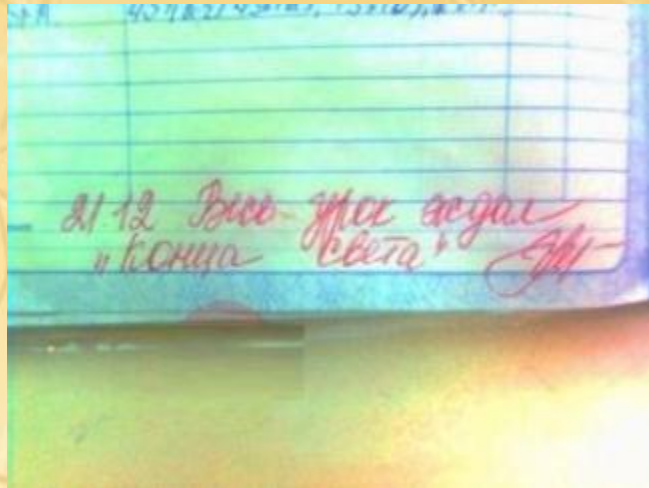 21 12 Весь урок ждал
"Конца света"